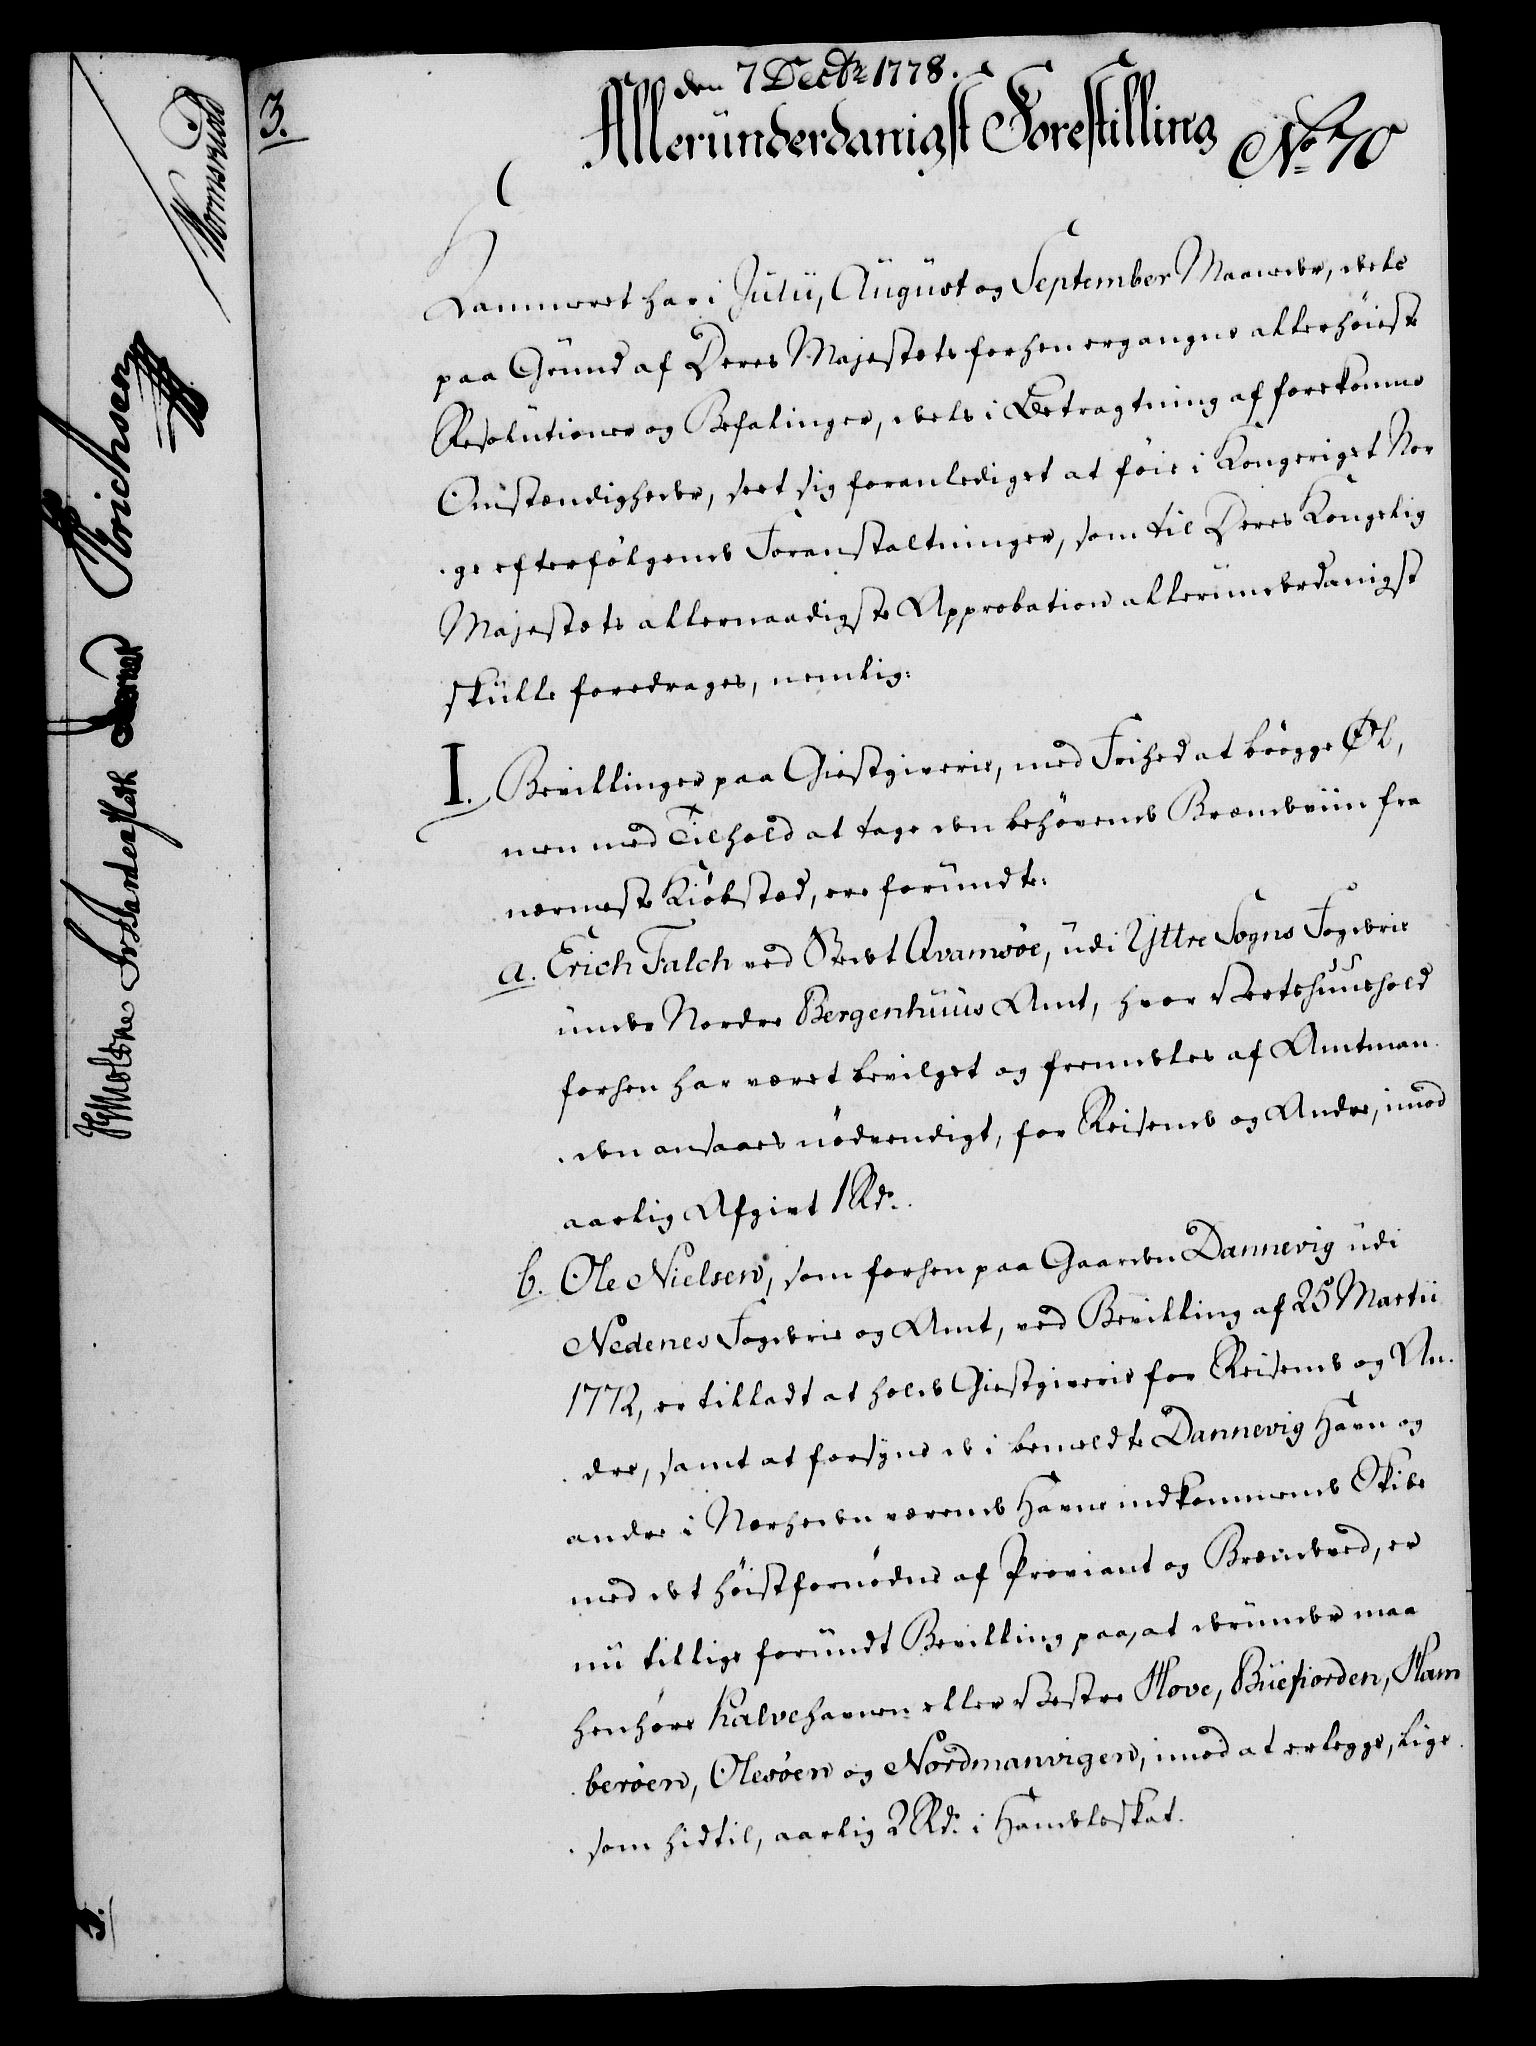 3.
den 7 Decbr 1778.
Alleründerdanigst Forestilling
No 70
Kammeret har i Julii, August og September Maaneder, deels
paa Grund af Deres Majestæts forhen ergangne allerhöieste
Resolutioner og Befalinger, deels i Betragtning af forekomne
Omstændigheder, seet sig foranlediget at föie i Kongeriget Nor
ge efterfölgende Foranstaltninger, som til Deres Kongelig
Majestæts allernaadigste Approbation allerunderdanigst
skulle foredrages, nemlig:
I. Bevillinger paa Giestgiverie, med Frihed at brögge Öl,
men med Tilhold at tage den behövende Brændeviin fra
nærmeste Kiöbstæd, ere forundte:
a. Erich Falch ved Stedet Qvamsöe, udi Yttre Sogns Fogderie
under Nordre Bergenhuus Amt, hvor Vertshuushold
forhen har været bevilget og fremdeles af Amtman
den ansaaes nödvendigt, for Reisende og Andre, imod
aarlig Afgivt 1 Rd.
b. Ole Nielsen, som forhen paa Gaarden Dannevig udi
Nedenes Fogderie og Amt, ved Bevilling af 25 Martii
1772, er tilladt at holde Giestgiverie for Reisende og An
dre, samt at forsyne de i bemeldte Dannevig Havn og
andre i Nærheden værende Havne indkommende Skibe
med det höistfornödne af Proviant og Brændeved, er
nu tillige forundt Bevilling paa, at derunder maa
henhöre Kalvehavnen eller Vestre Hove, Buefiorden, Ham
beröen, Olesöen og Nordmanvigen, imod at erlegge, lige
som hidtil, aarlig 2 Rd. i Handelsskat.
Erichsen